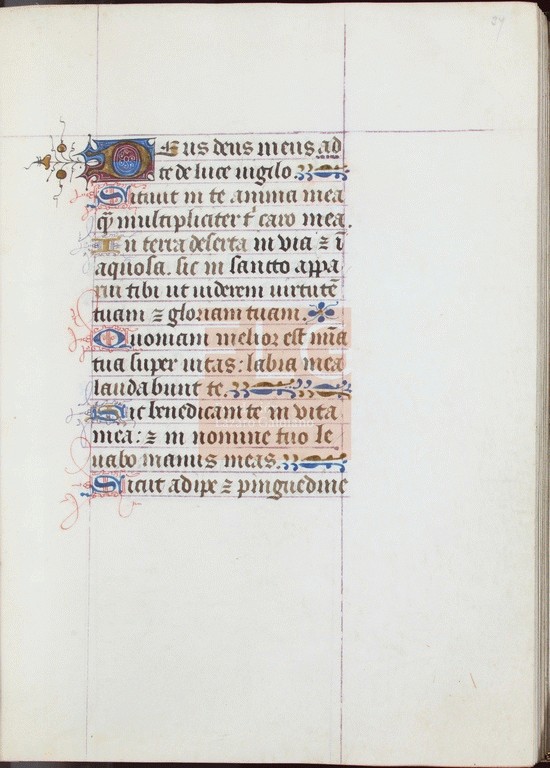 27
Deus deus meus ad
te de luce vigilo.
Sitivit in te anima mea
q̄ multipliciter t̄ caro mea.
In terra deserta in via ⁊ ī
aquosa. sic in sancto appa
rui tibi ut viderem virtutē
tuam ⁊ gloriam tuam.
Quoniam melior est mīa
tua super vitas: labia mea
laudabunt te.
Sic benedicam te in vita
mea: ⁊ in nomine tuo le
vabo manus meas.
Sicut adipe ⁊ pinguedine